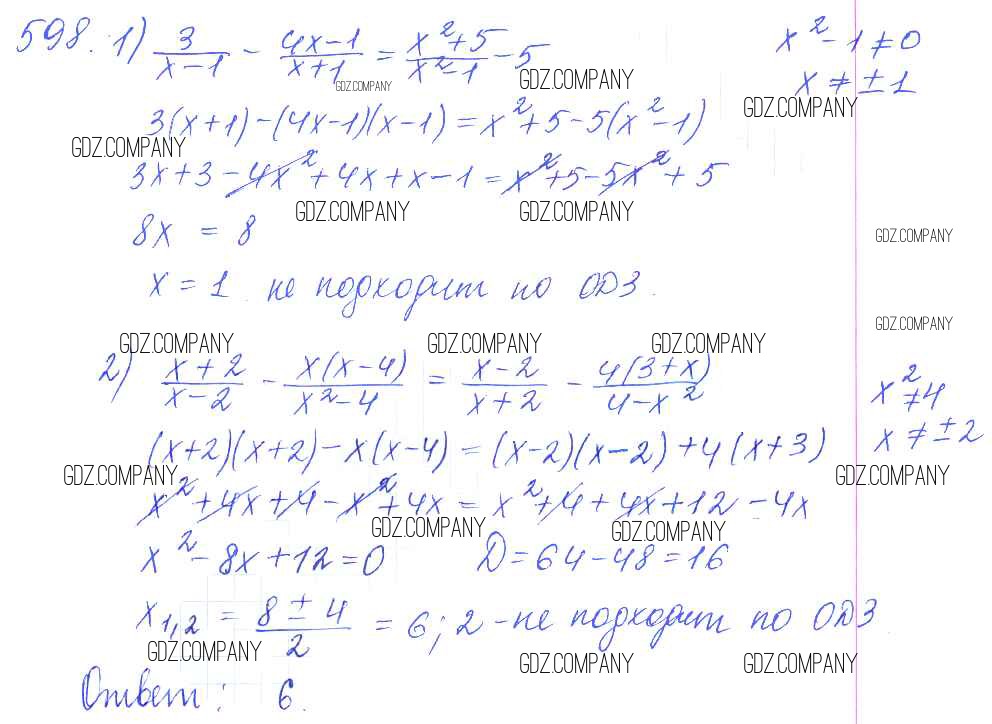 598. 1) 3/(x-1) - (4x-1)/(x+1) = (x²+5)/(x²-1) - 5
x² - 1 ≠ 0
x ≠ ± 1
GDZ.COMPANY GDZ.COMPANY GDZ.COMPANY
3(x+1) - (4x-1)(x-1) = x²+5-5(x²-1)
GDZ.COMPANY
3x+3-4x²+4x+x-1 = x²+5-5x²+5
GDZ.COMPANY GDZ.COMPANY
8x = 8
GDZ.COMPANY
x = 1 не подходит по ОДЗ.
GDZ.COMPANY
GDZ.COMPANY GDZ.COMPANY GDZ.COMPANY
2) (x+2)/(x-2) - x(x-4)/(x²-4) = (x-2)/(x+2) - 4(3+x)/(4-x²)
x² ≠ 4
x ≠ ± 2
(x+2)(x+2) - x(x-4) = (x-2)(x-2) + 4(x+3)
GDZ.COMPANY GDZ.COMPANY
x²+4x+4-x²+4x = x²+4+4x+12-4x
GDZ.COMPANY GDZ.COMPANY
x²-8x+12=0 D=64-48=16
x1,2 = (8±4)/2 = 6; 2 - не подходит по ОДЗ
GDZ.COMPANY GDZ.COMPANY GDZ.COMPANY
Ответ: 6.